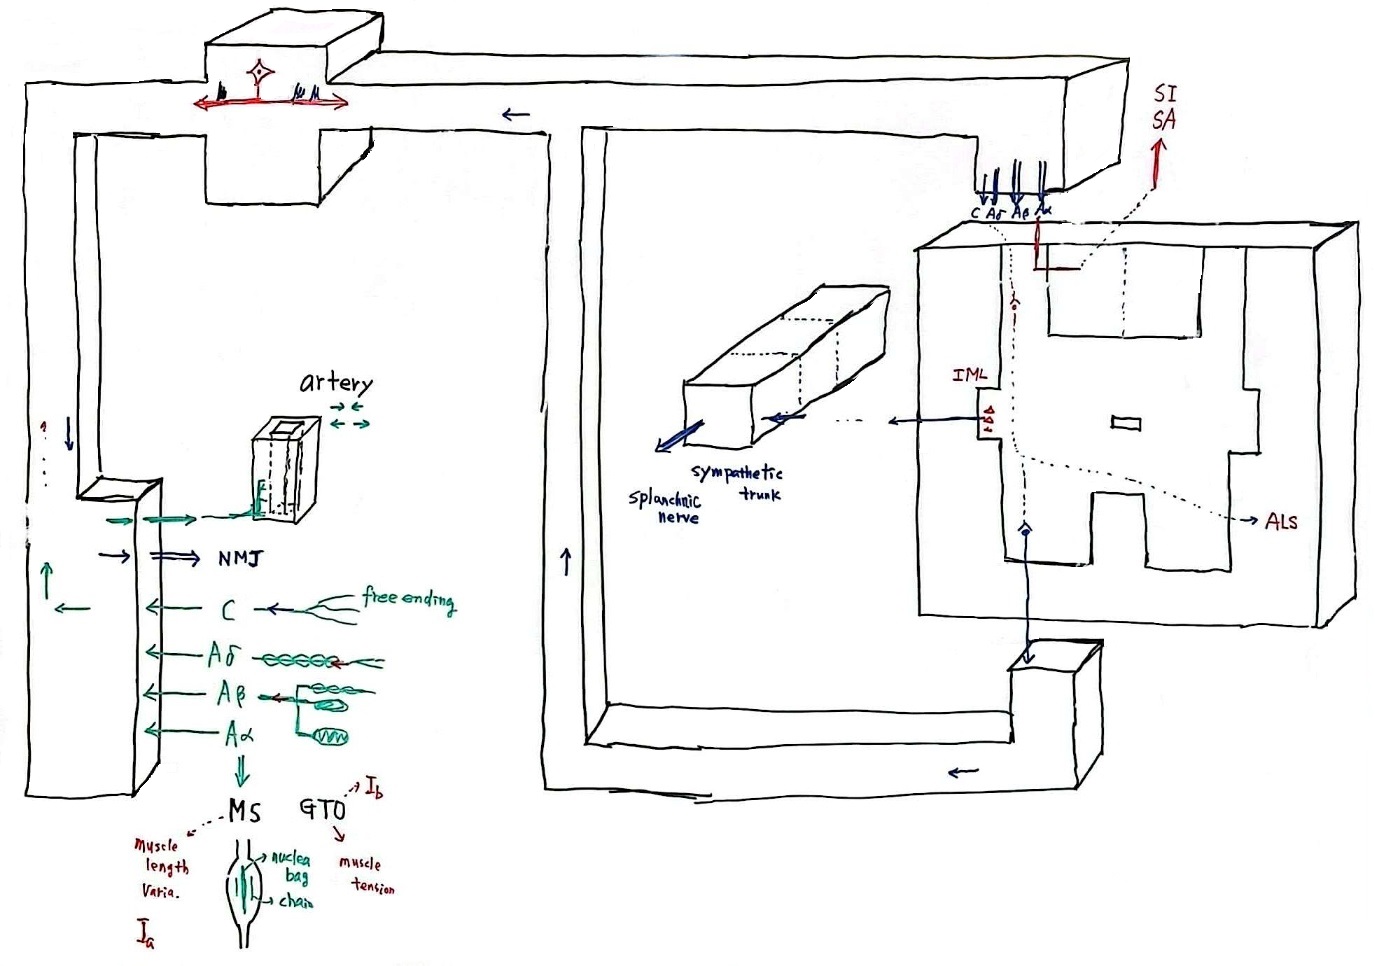 SI
SA
C Aδ Aβ Aα
IML
artery
sympathetic
trunk
splanchnic
nerve
ALS
NMJ
C
free ending
Aδ
Aβ
Aα
MS
GTO
Ib
muscle
length
varia.
Ia
nuclea
bag
chain
muscle
tension